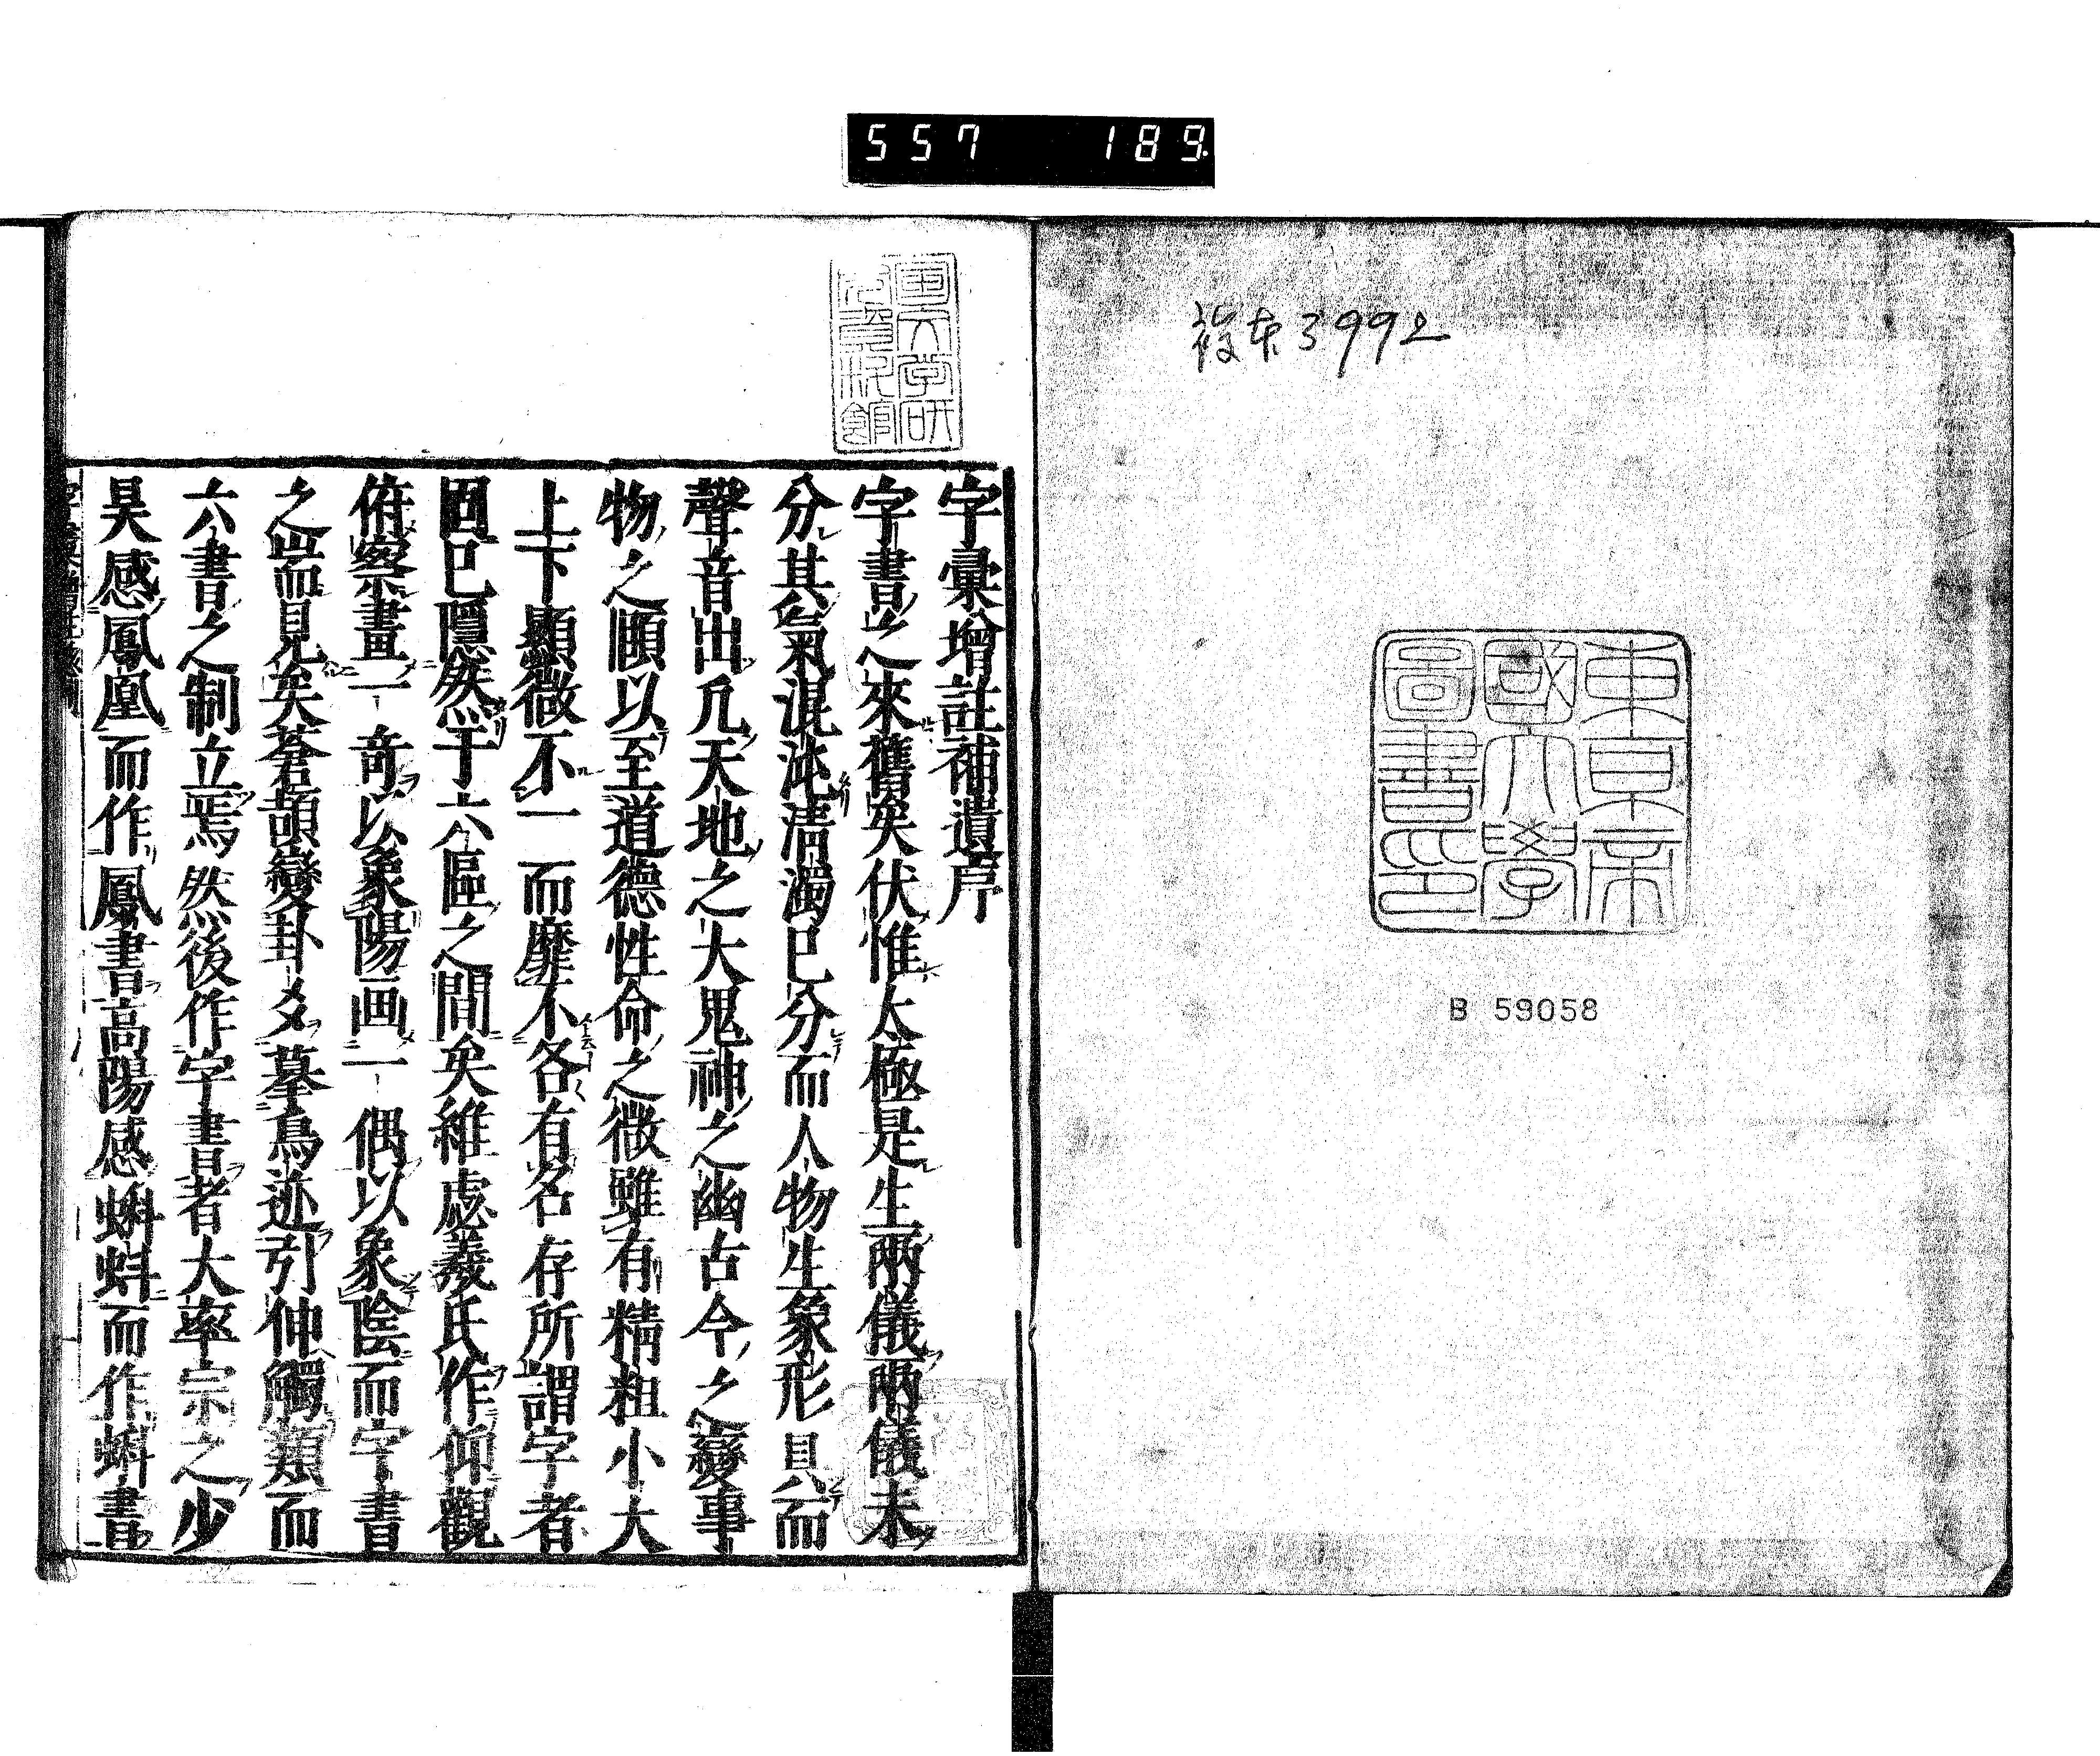 557 189
複本3992
東京帝
國大學
圖書印
B 59058
字彙增註補遺序
字書之來舊矣伏惟太極是生兩儀兩儀未
分其氣混沌淸濁已分而人物生象形具而
聲音出凡天地之大鬼神之幽古今之變事
物之賾以至道德性命之微雖有精粗小大
上下顯微不一而靡不各有名存所謂字者
固已隱然于六區之間矣維虙羲氏作仰觀
俯察畫一奇以象陽画一偶以象陰而字書
之耑而見矣蒼頡變卦爻摹鳥迹引伸觸類而
六書之制立焉然後作字書者大率宗之少
昊感鳳凰而作鳳書高陽感蝌蚪而作蝌書